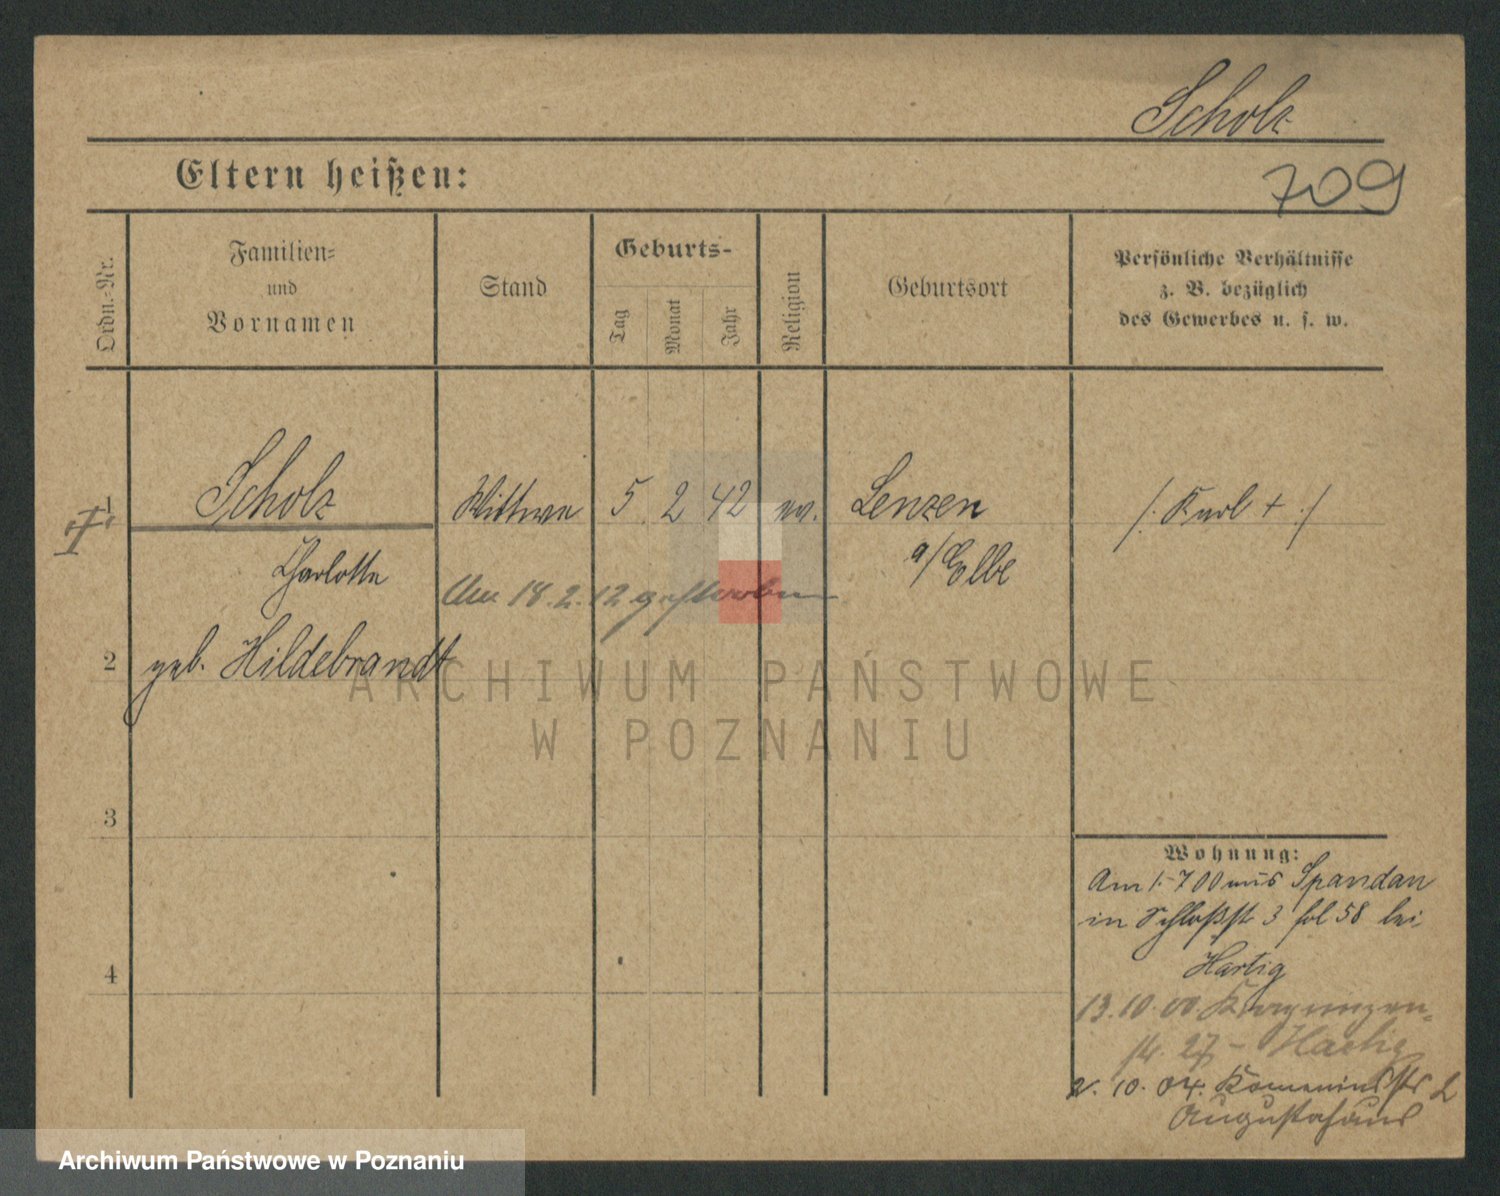 Scholz
Eltern heißen:
709
Ordn.-Nr.
Familien-
und
Vornamen
Stand
Geburts-
Tag
Monat
Jahr
Religion
Geburtsort
Persönliche Verhältnisse
z. B. bezüglich
des Gewerbes u. s. w.
1
Scholz Wittwe 5 2 42 ev. Lenzen /: Karl + :/
Charlotte a/Elbe
Am 18.2.12 gestorben
2
geb. Hildebrandt
ARCHIWUM PAŃSTWOWE
W POZNANIU
3
Wohnung:
Am 1.-7 00 aus Spandau
in Schloßstr 3 fol 58 bei
Hartig
4
13.10.00
14. 27 - Hartig
2. 10. 04. Komeniusstr 2
Augustahaus
Archiwum Państwowe w Poznaniu